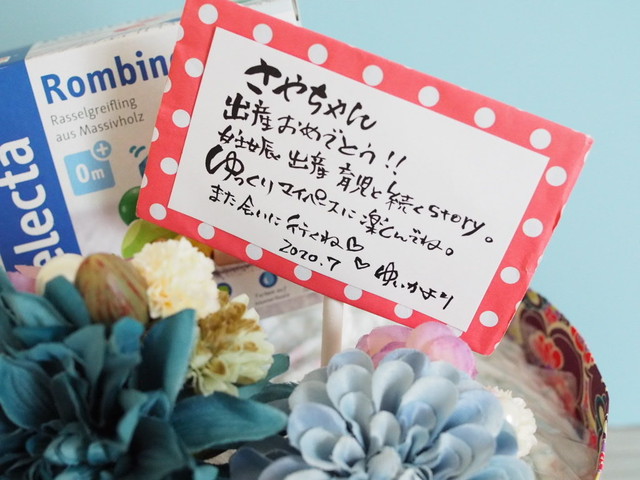 Rombin
Rasselgreifling
aus Massivholz
0m+
electa
さやちゃん
出産おめでとう!!
妊娠、出産、育児と続くstory。
ゆっくりマイペースに楽しんでね。
また会いに行くね♡
2020.7 ♡ ゆいかより